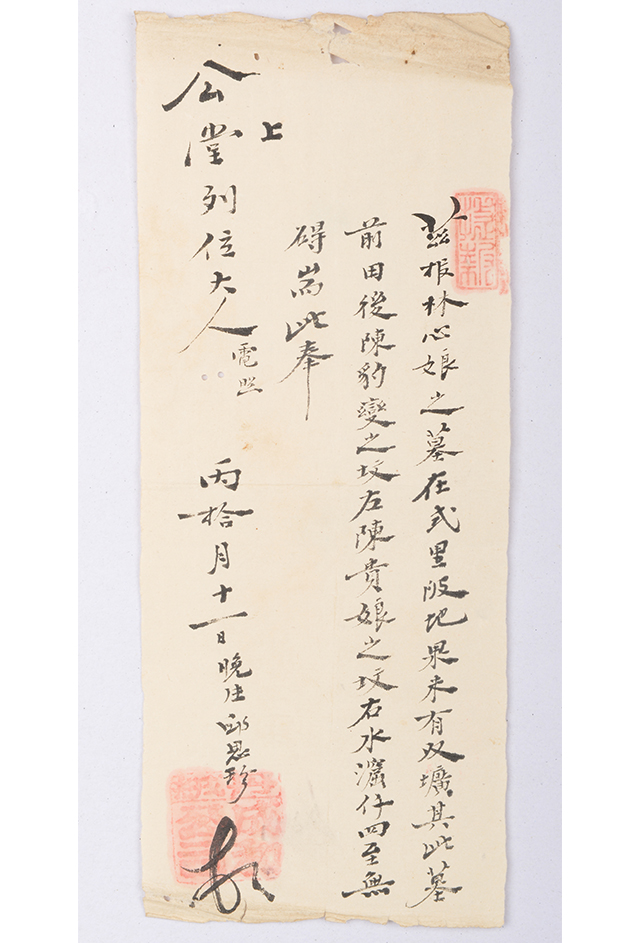 兹林心娘之墓在弍里陂地果未有双壙其此墓
前田後陳豹變之坟左陳貴娘之坟右水四至無
碍耑此奉
上
公堂列位大人電照
丙拾月十一日晚生邱思珍